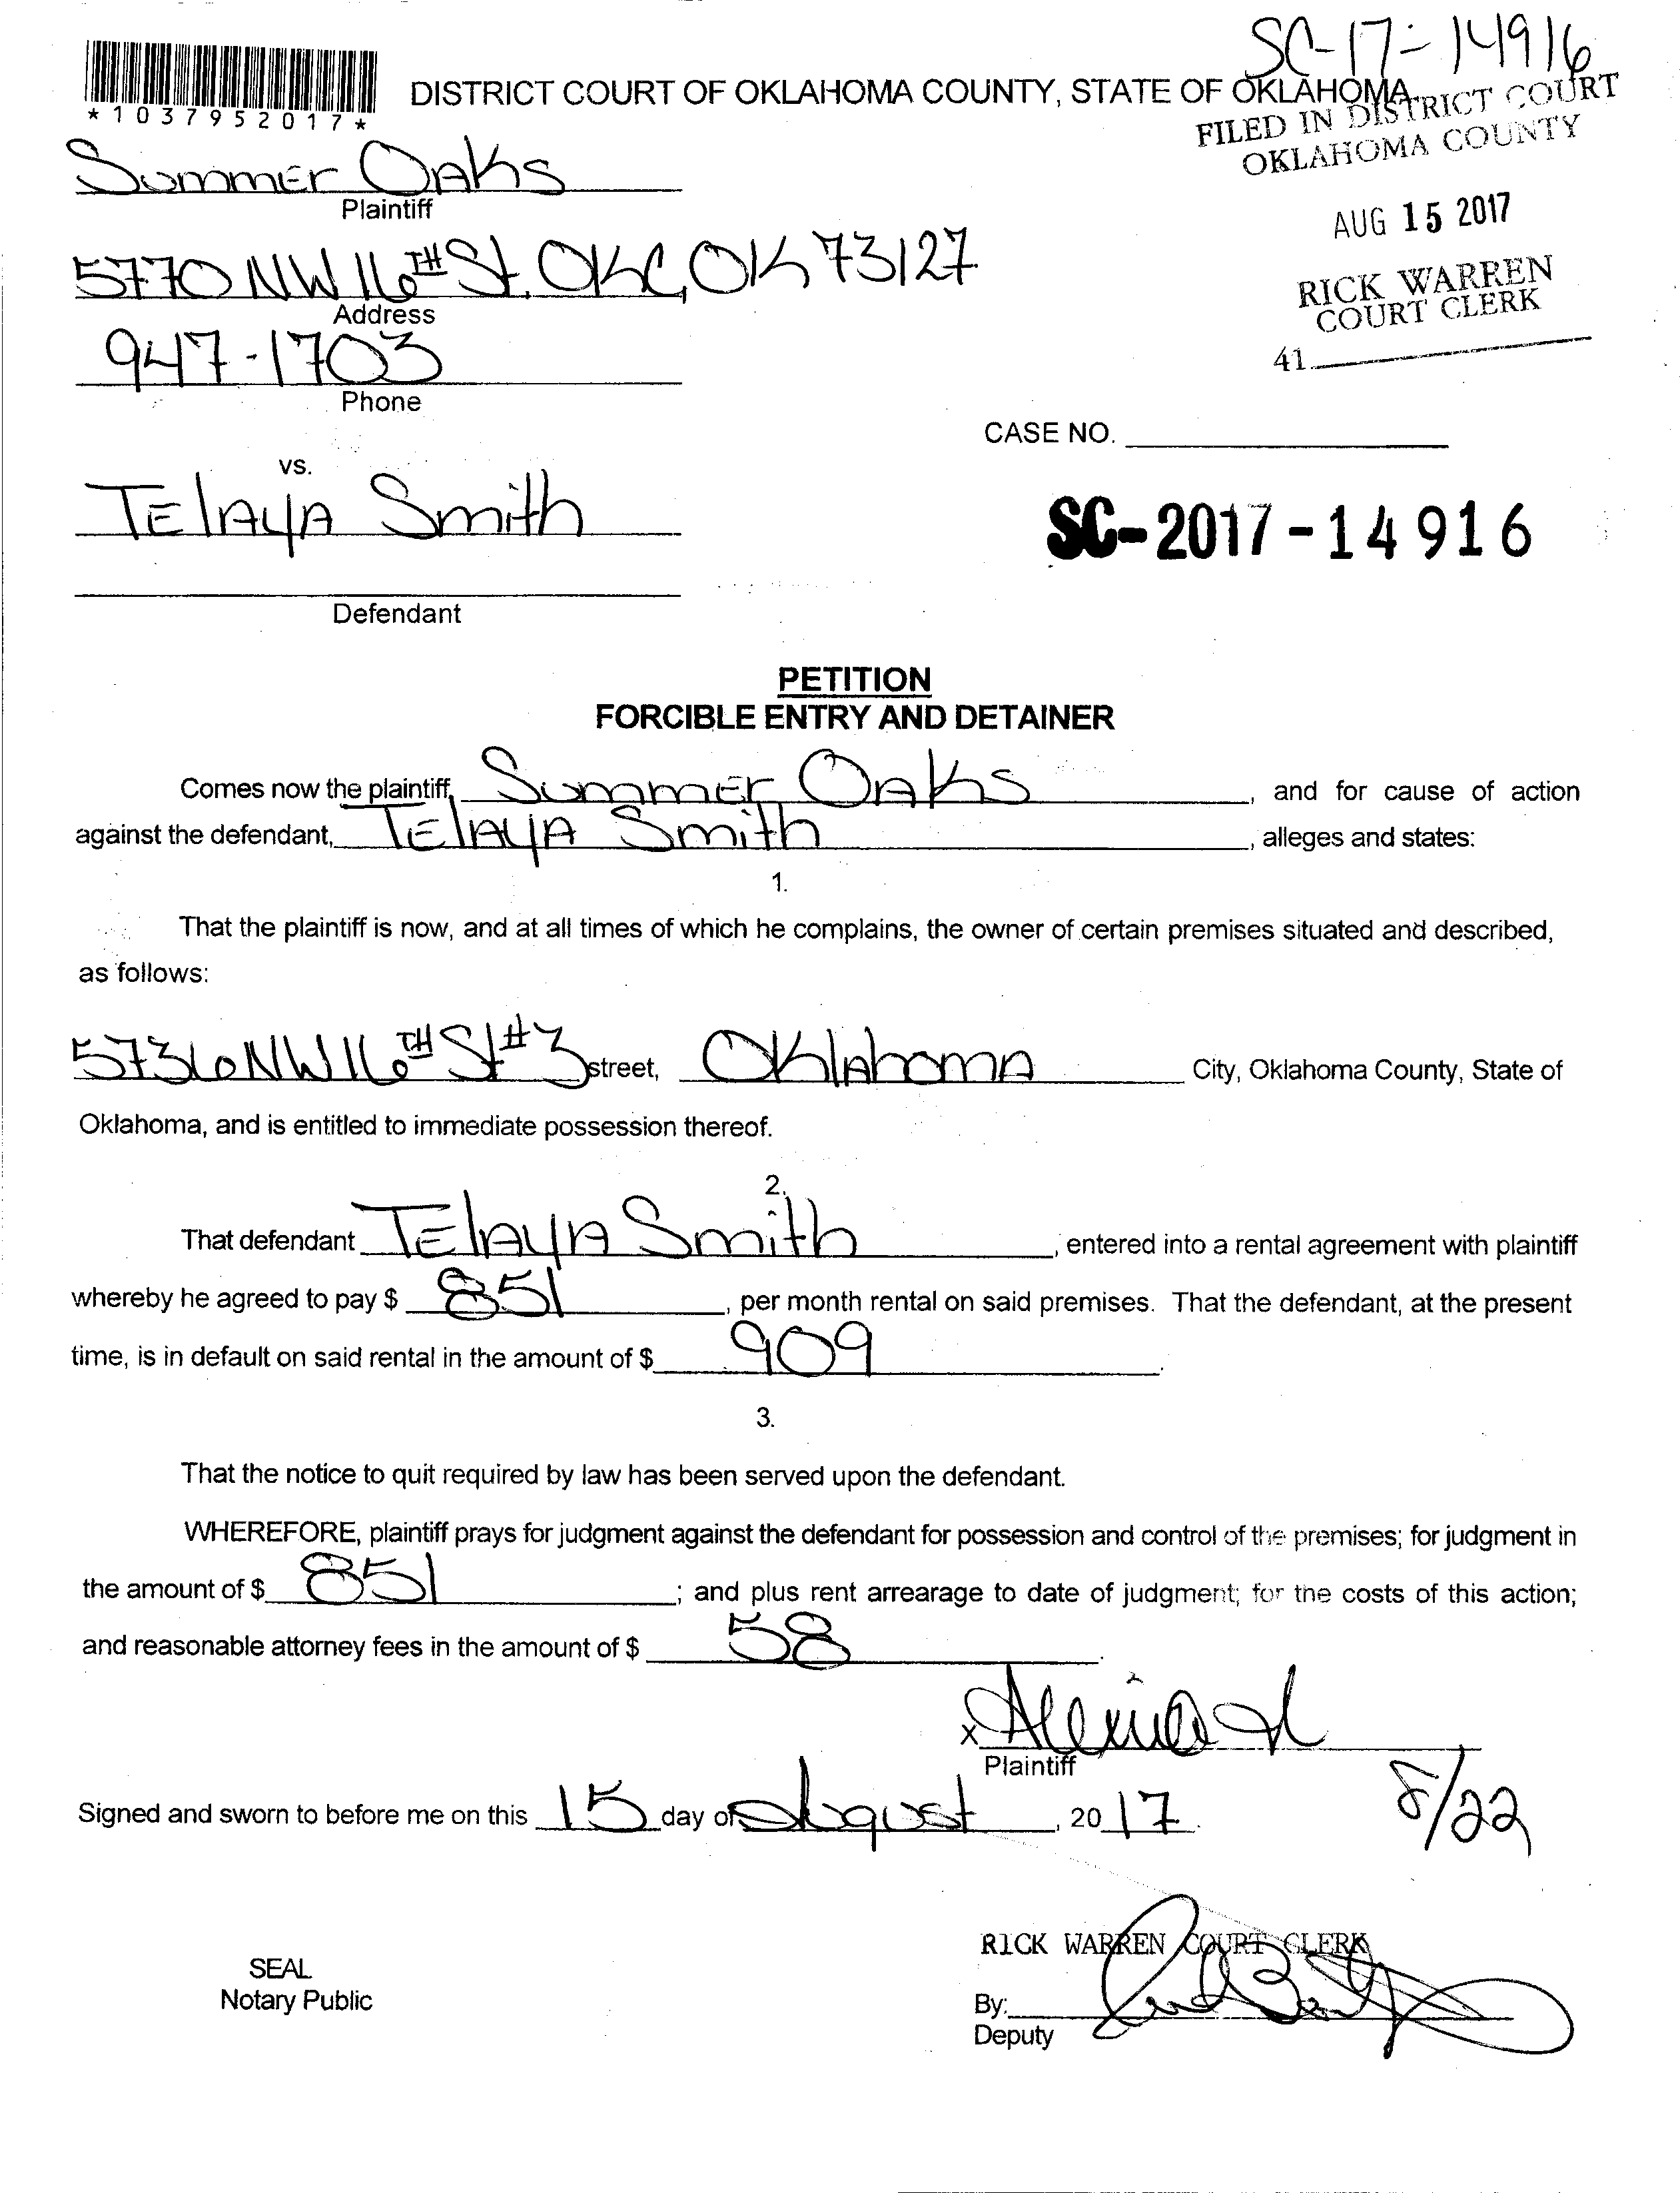 SC-17-14916
*1037952017*
DISTRICT COURT OF OKLAHOMA COUNTY, STATE OF OKLAHOMA
FILED IN DISTRICT COURT
OKLAHOMA COUNTY
Summer Oaks
Plaintiff
AUG 15 2017
5770 NW 16TH St. OKC, OK 73127
Address
RICK WARREN
COURT CLERK
947-1703
Phone
41
CASE NO.
vs.
TElAyA Smith
SC-2017-14916
Defendant
PETITION
FORCIBLE ENTRY AND DETAINER
Comes now the plaintiff, Summer Oaks, and for cause of action
against the defendant, TElAyA Smith, alleges and states:
1.
That the plaintiff is now, and at all times of which he complains, the owner of certain premises situated and described,
as follows:
5736 NW 16TH St #3 street, Oklahoma City, Oklahoma County, State of
Oklahoma, and is entitled to immediate possession thereof.
2.
That defendant TElAyA Smith, entered into a rental agreement with plaintiff
whereby he agreed to pay $ 851, per month rental on said premises. That the defendant, at the present
time, is in default on said rental in the amount of $ 909.
3.
That the notice to quit required by law has been served upon the defendant.
WHEREFORE, plaintiff prays for judgment against the defendant for possession and control of the premises; for judgment in
the amount of $ 851; and plus rent arrearage to date of judgment; for the costs of this action;
and reasonable attorney fees in the amount of $ 58.
X
Plaintiff
8/22
Signed and sworn to before me on this 15 day of August, 2017.
RICK WARREN COURT CLERK
SEAL
Notary Public
By:
Deputy